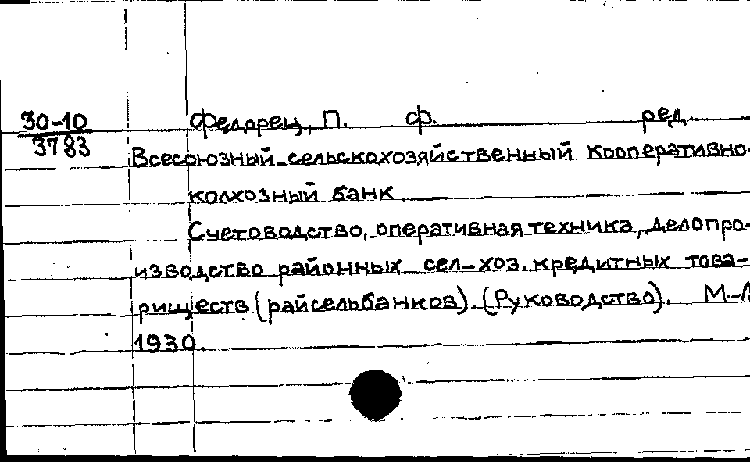 30-10
3783
Федорец, П. Ф. ред.
Всесоюзный сельскохозяйственный кооперативно-
колхозный банк
Счетоводство, оперативная техника, делопро-
изводство районных сел-хоз. кредитных това-
риществ (райсельбанков). (Руководство). М-Л
1930.